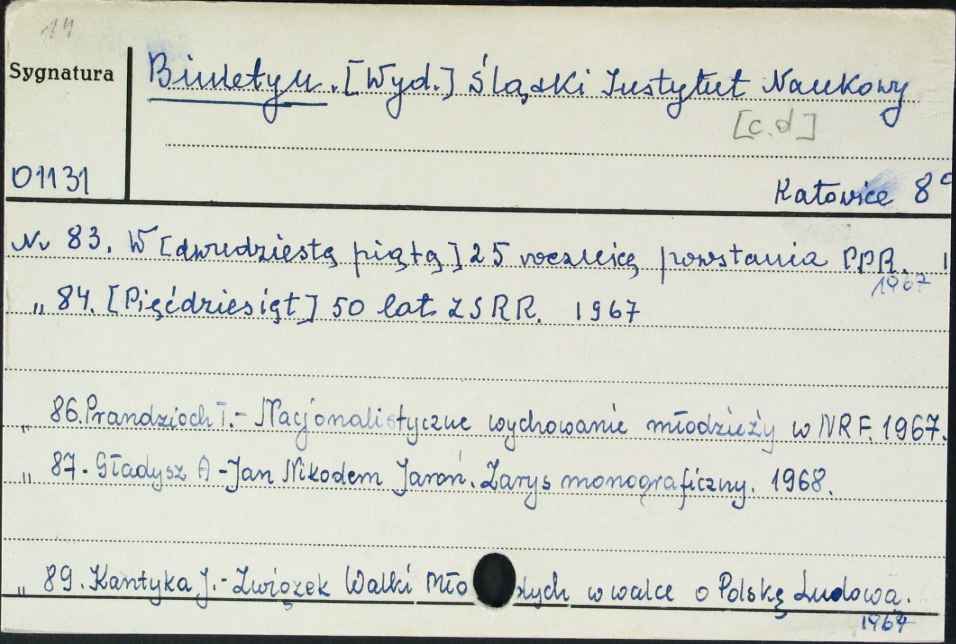 14
Sygnatura
Biuletyn. [Wyd.] Śląski Instytut Naukowy
[c.d]
01131
Katowice 8°
Nr 83. W [dwudziestą piątą] 25 rocznicę powstania PPR. 1
1967
„ 84. [Pięćdziesiąt] 50 lat ZSRR. 1967
„ 86. Prandzioch T. - Nacjonalistyczne wychowanie młodzieży w NRF. 1967.
„ 87. Gładysz A - Jan Nikodem Jaroń. Zarys monograficzny. 1968.
„ 89. Kantyka J. - Związek Walki Mło dych w walce o Polskę Ludową.
1967